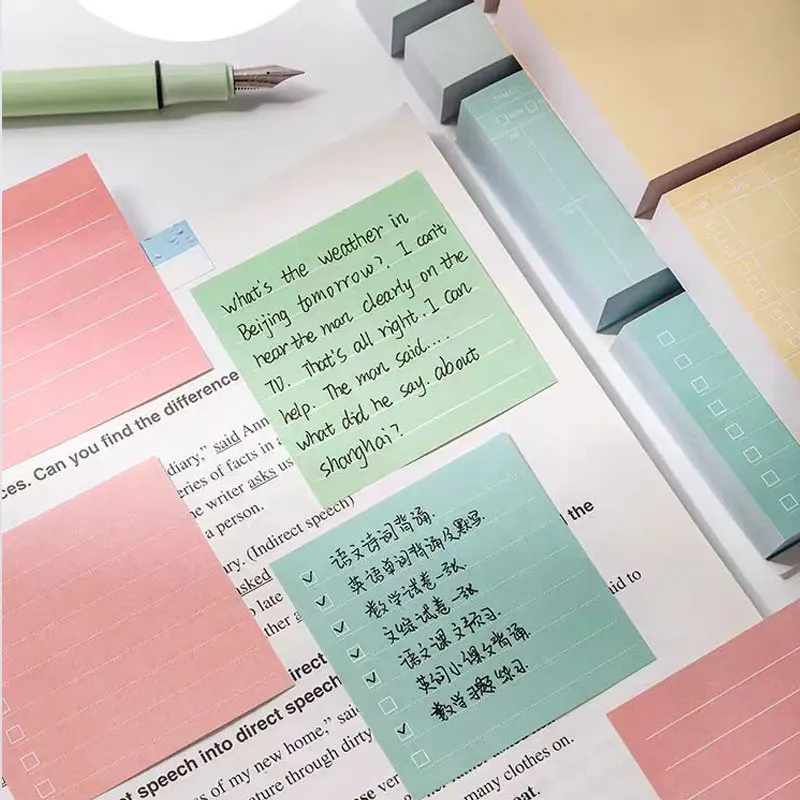 what's the weather in
Beijing tomorrow? I can't
hear the man clearly on the
TV. That's all right. I can
help. The man said....
what did he say about
shanghai?
语文诗词背诵.
英语单词背诵及默写
数学试卷一张
文综试卷一张
语文课文预习.
英词小课文背诵
数学习题练习.
ces. Can you find the difference
diary,” said Ann
eries of facts in a
he writer asks us
a person.
ary. (Indirect speech)
asked
o late
ther a
the
aid to
direct
t speech into direct speech
s of my new home,” said
ature through dirty
se very
many clothes on.
at.
TIME